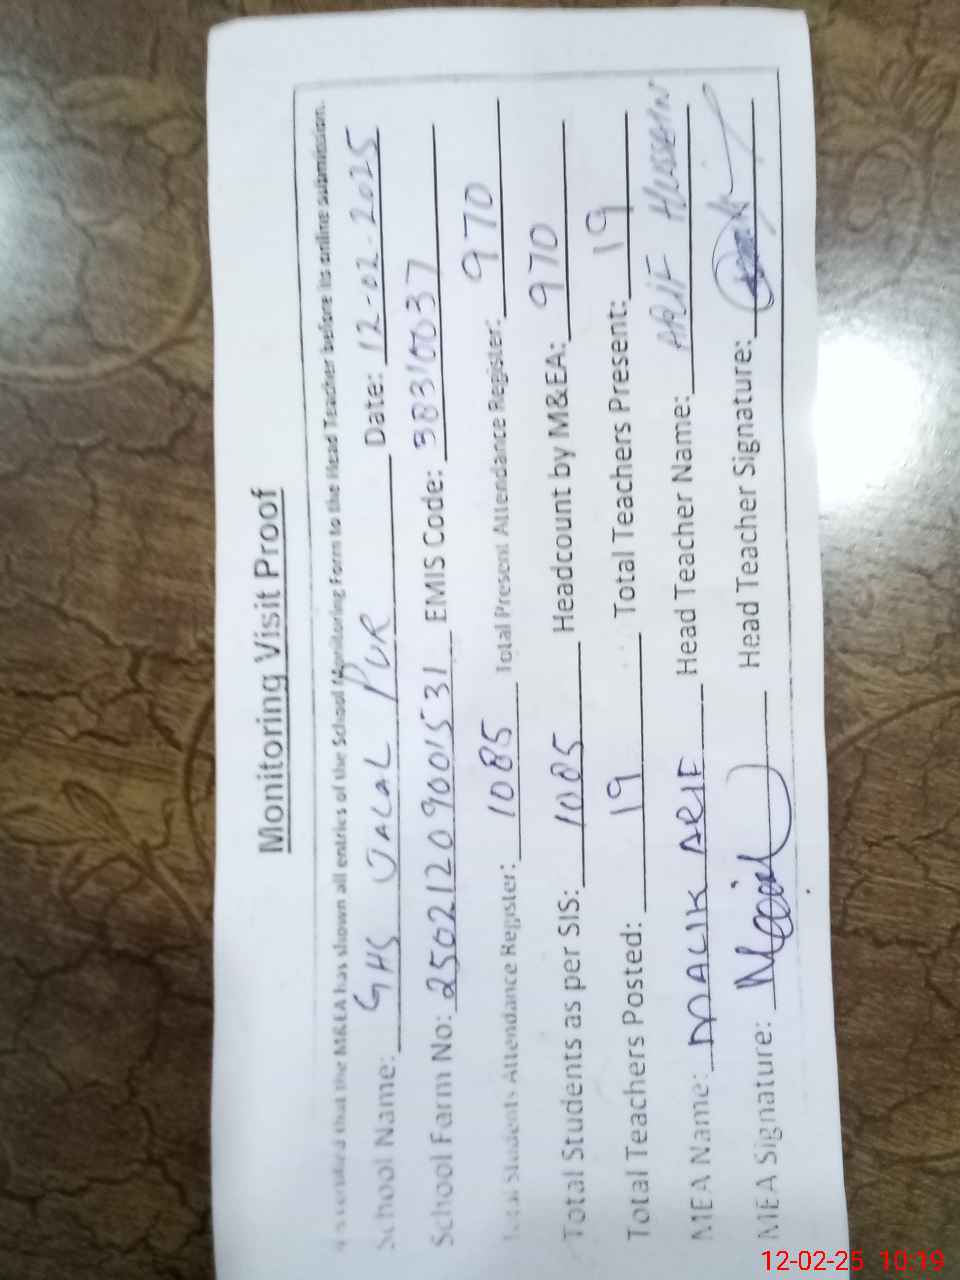 Monitoring Visit Proof
It is certified that the M&EA has shown all entries of the School Monitoring Form to the Head Teacher before its online submission.
School Name: GHS JALAL PUR Date: 12-02-2025
School Form No: 250212090015 31 EMIS Code: 38310037
Total Students Attendance Register: 1085 Total Present Attendance Register: 970
Total Students as per SIS: 1085 Headcount by M&EA: 970
Total Teachers Posted: 19 Total Teachers Present: 19
MEA Name: MALIK ARIF Head Teacher Name: ARIF HUSSAIN
MEA Signature: Head Teacher Signature:
12-02-25 10:19